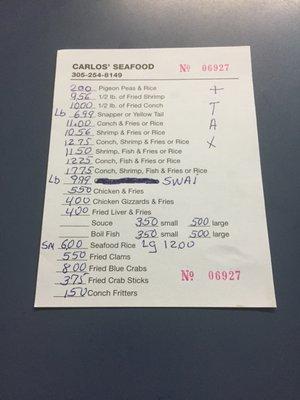 CARLOS' SEAFOOD
305-254-8149
Nº 06927
200 Pigeon Peas & Rice
956 1/2 lb. of Fried Shrimp
1000 1/2 lb. of Fried Conch
Lb 699 Snapper or Yellow Tail
1100 Conch & Fries or Rice
1056 Shrimp & Fries or Rice
1275 Conch, Shrimp & Fries or Rice
1150 Shrimp, Fish & Fries or Rice
1225 Conch, Fish & Fries or Rice
1775 Conch, Shrimp, Fish & Fries or Rice
Lb 999 SWAI
550 Chicken & Fries
400 Chicken Gizzards & Fries
400 Fried Liver & Fries
Souce 350 small 500 large
Boil Fish 350 small 500 large
SM 600 Seafood Rice Lg 1200
550 Fried Clams
800 Fried Blue Crabs
375 Fried Crab Sticks
150 Conch Fritters
+
T
A
X
Nº 06927